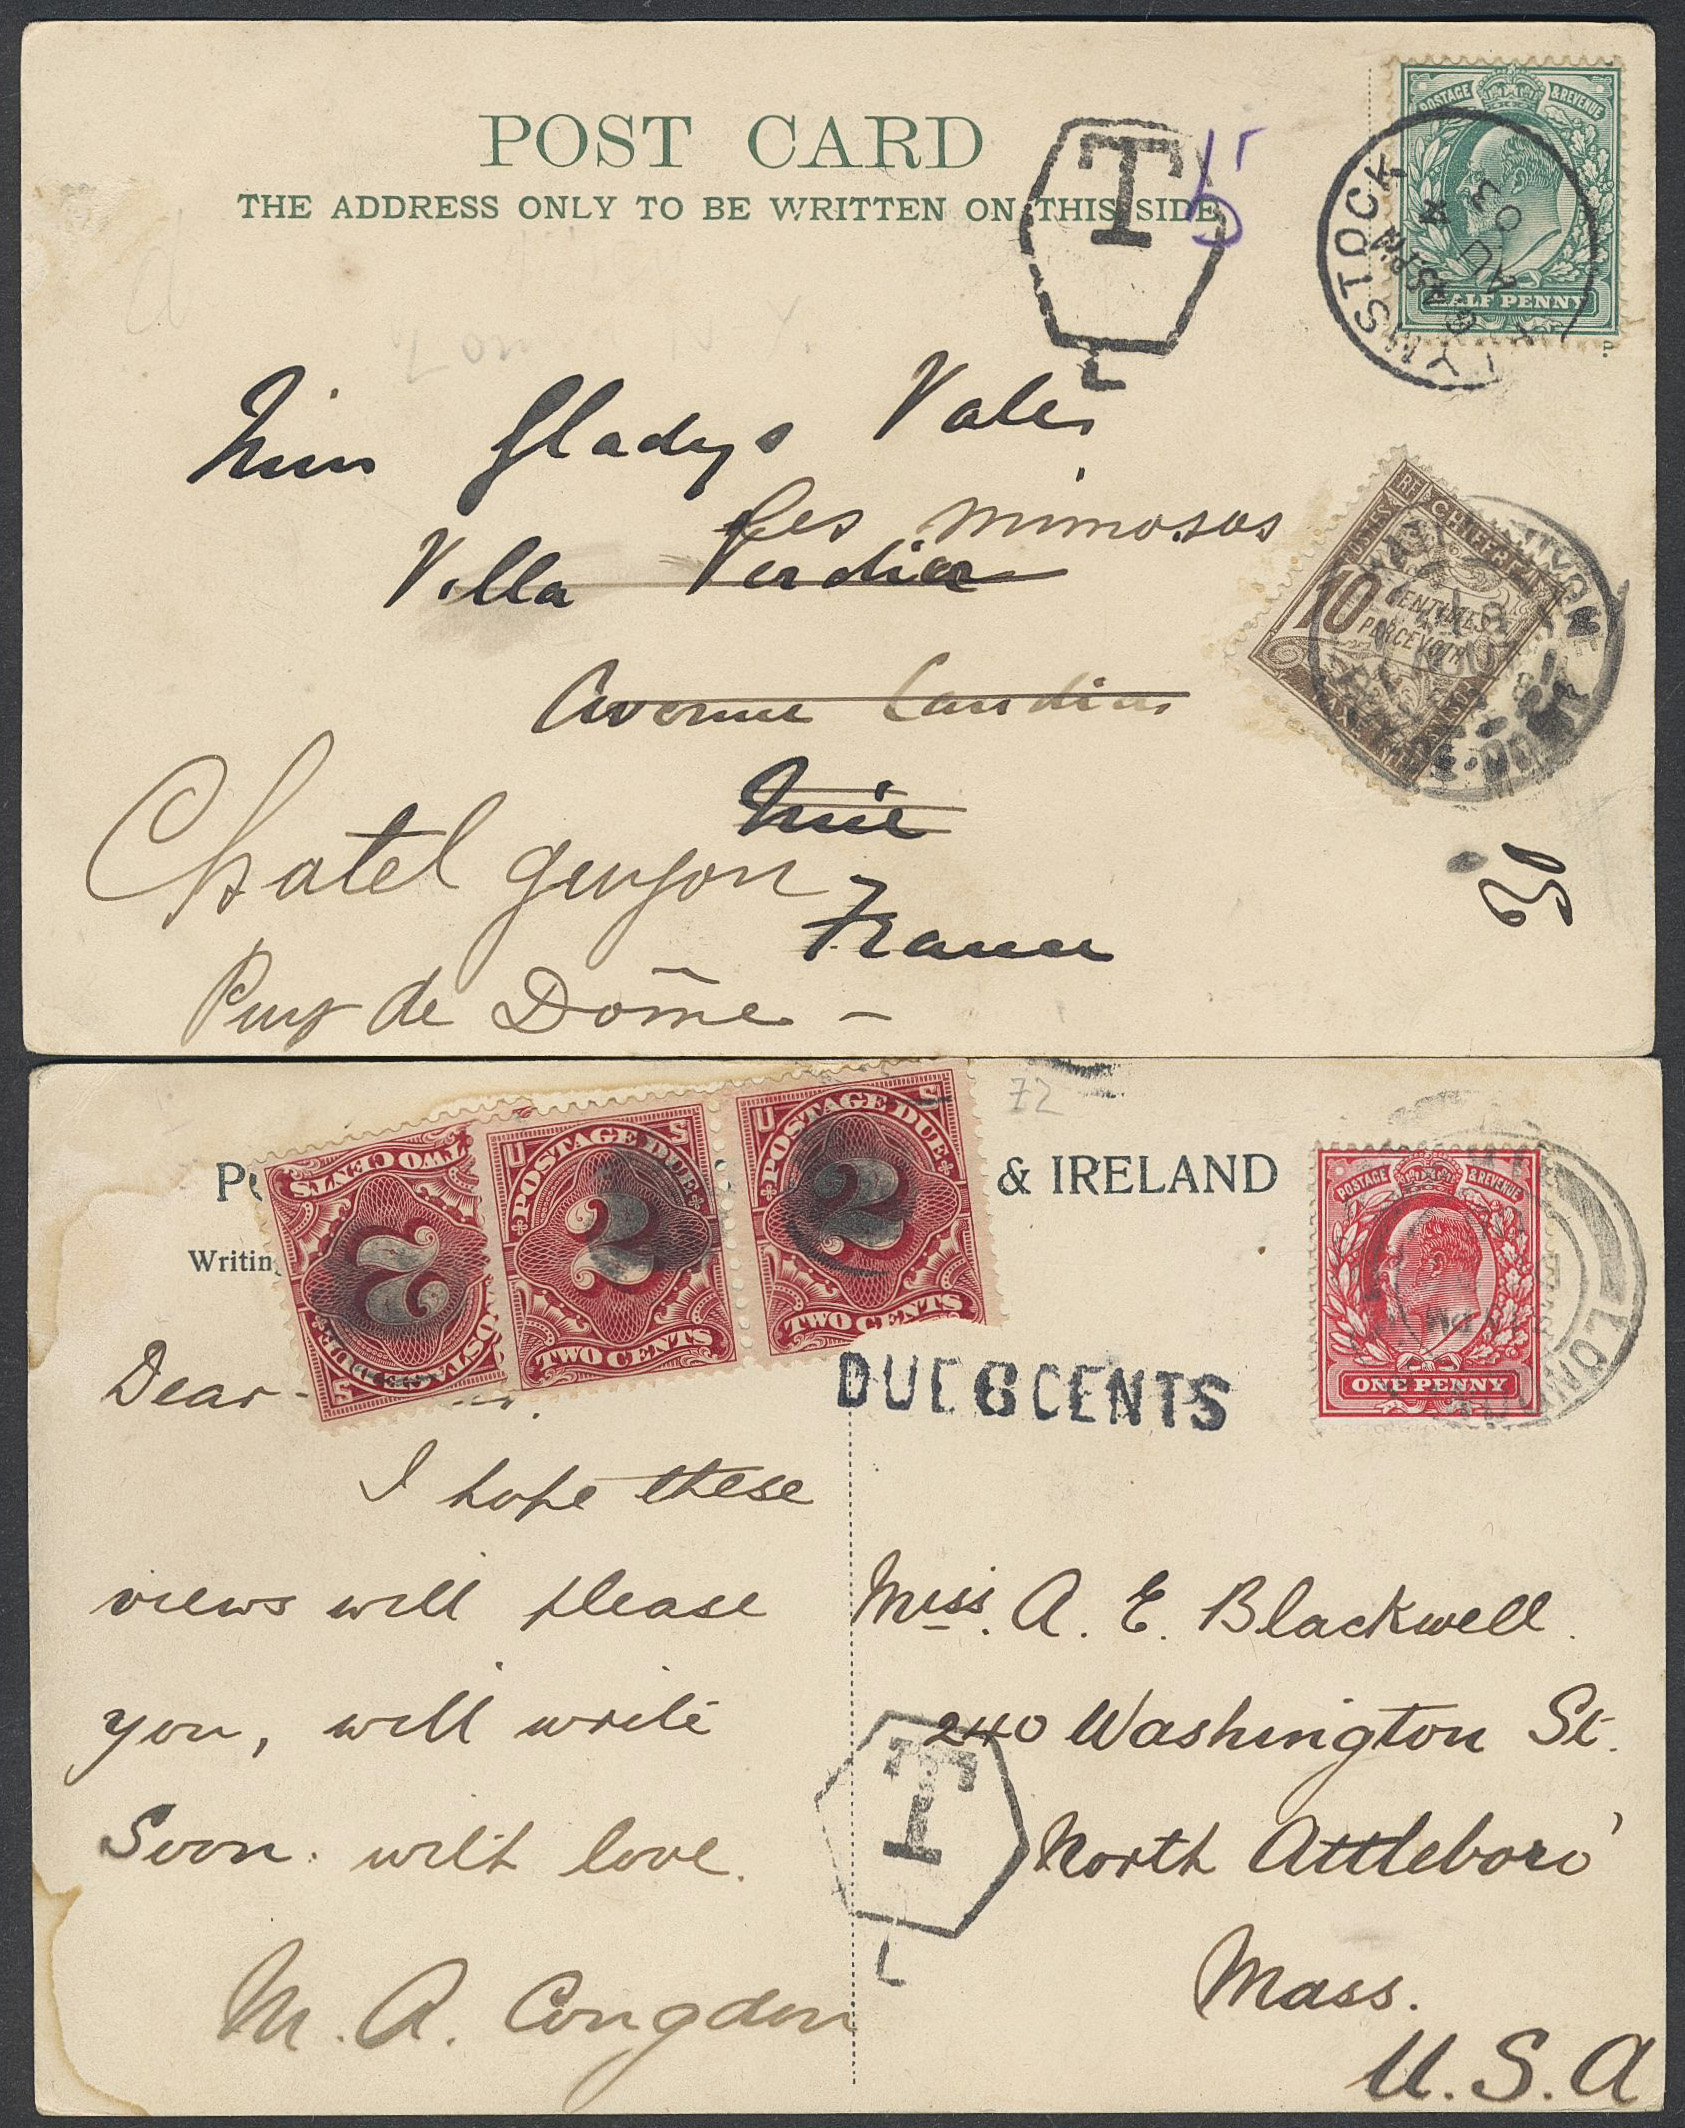 POST CARD
THE ADDRESS ONLY TO BE WRITTEN ON THIS SIDE
T
L
POSTAGE & REVENUE
HALF PENNY
LYNSTOCK
AU 4
03
Miss Gladys Vales
Les mimosas
Villa Verdier
Avenue
Nice
Chatel guyon
France
Puy de Dôme -
RF
POSTES
CHIFFRE
10 CENTIMES
A PERCEVOIR
30
72
& IRELAND
Writing
TWO CENTS
2
POSTAGE DUE
U S
POSTAGE DUE
2
TWO CENTS
U S
POSTAGE DUE
2
TWO CENTS
POSTAGE & REVENUE
ONE PENNY
LONDON
DUE 6 CENTS
Dear
I hope these
views will please
you, will write
Soon. with love.
M. A. Congdon
Miss. A. E. Blackwell.
240 Washington St.
North Attleboro'
Mass.
U.S.A
T
L